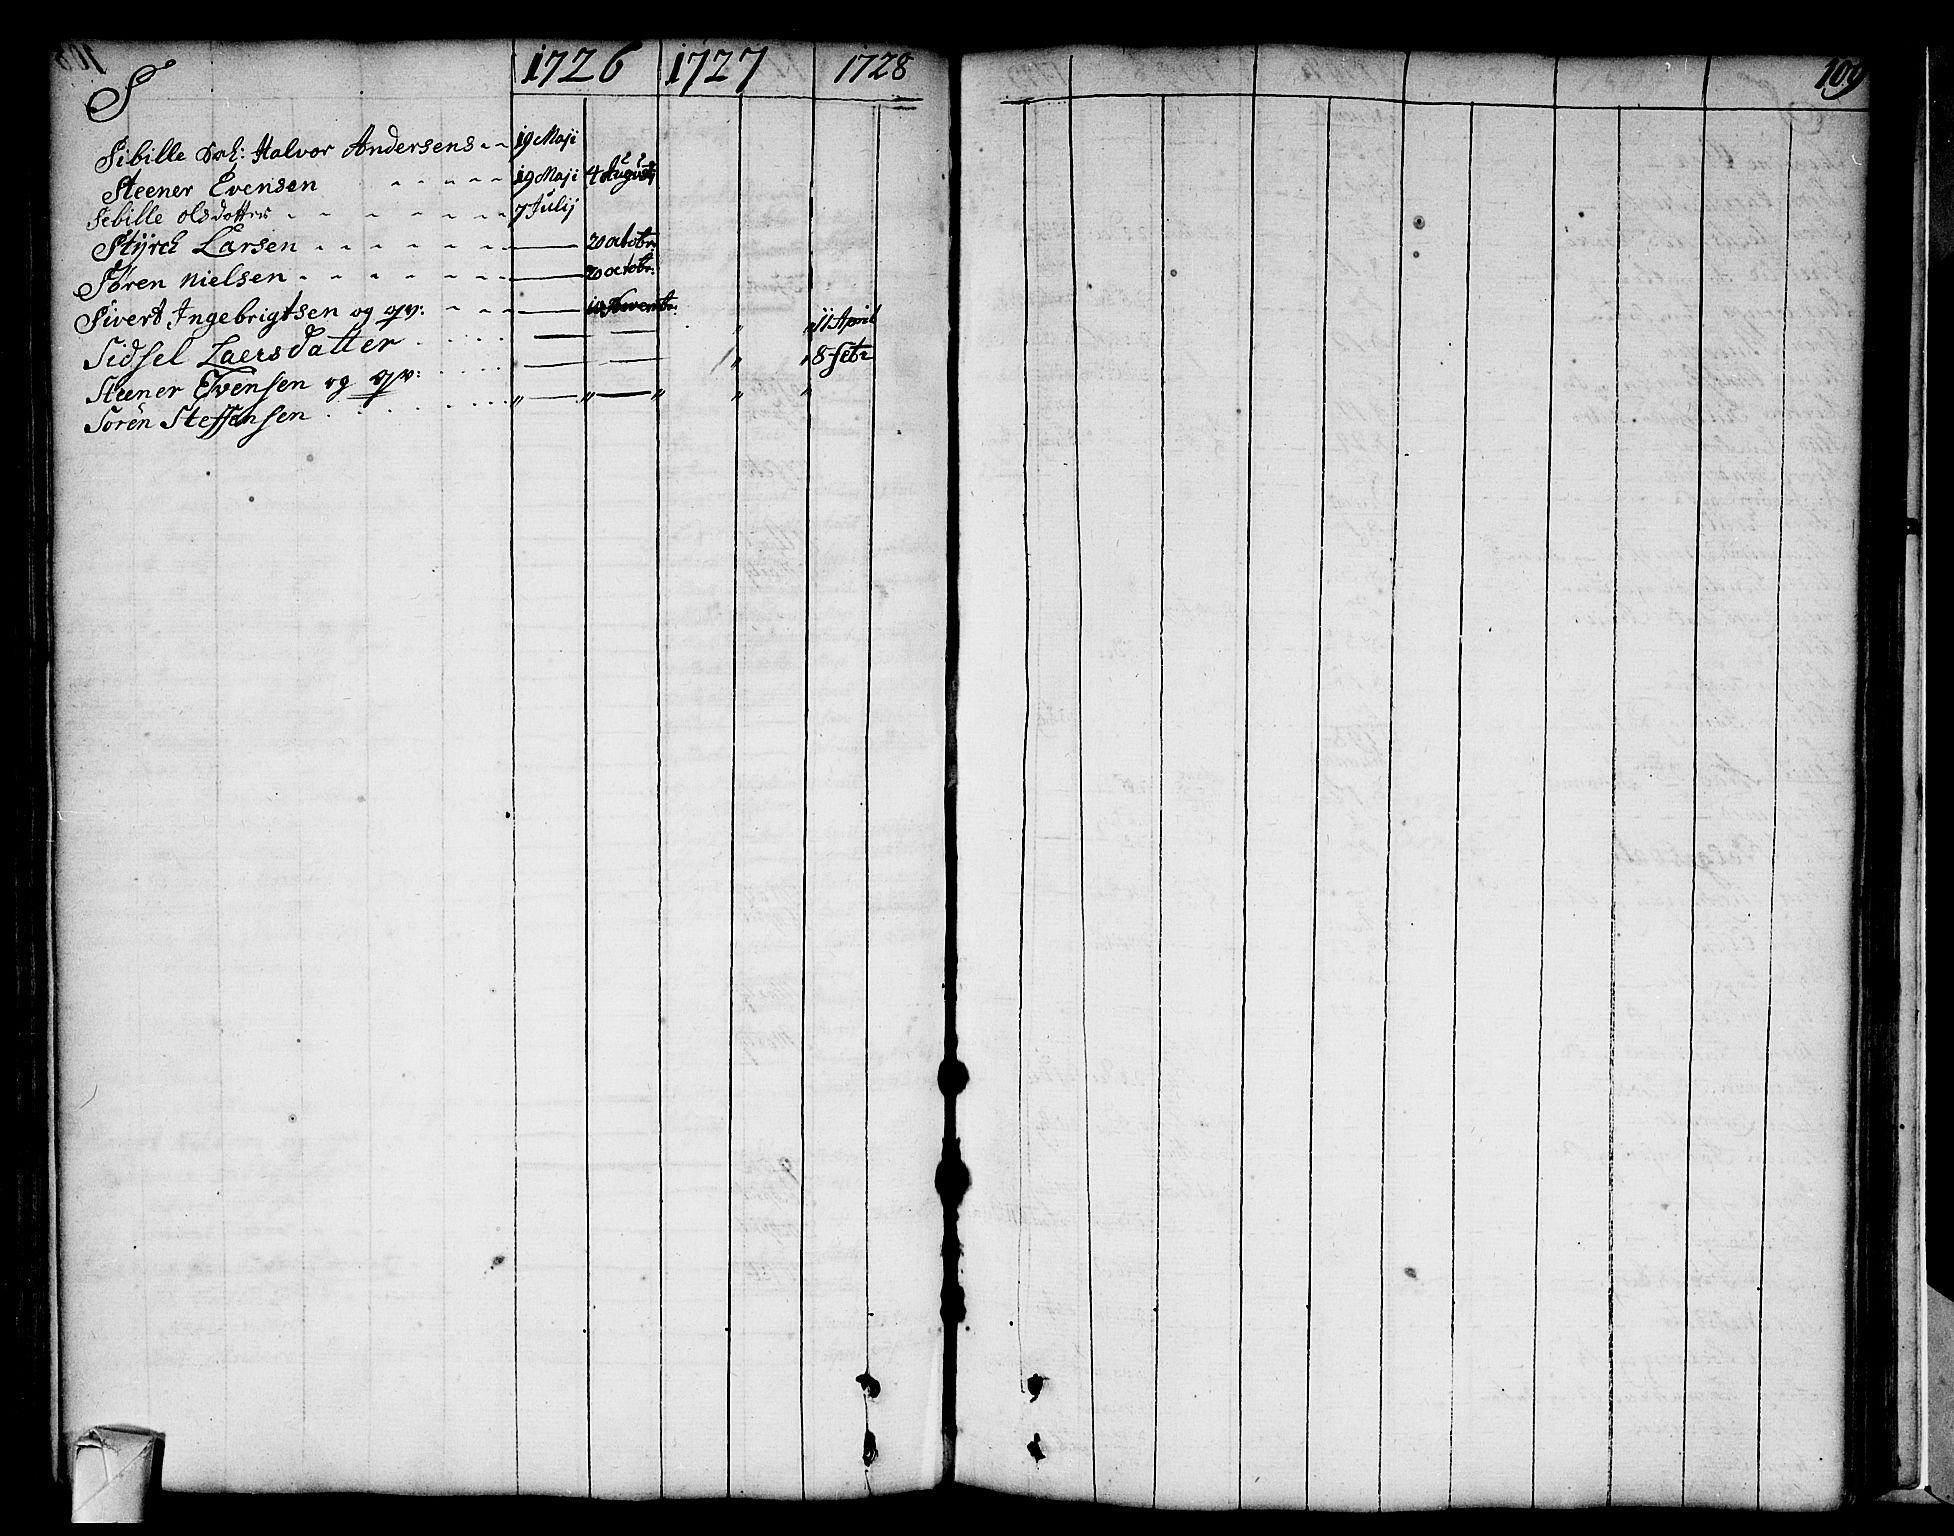 S 1726 1727 1728 109
Sibille Sal: Halvor Andersens 19 Maji
Steener Evensen 19 Maji 4 Augusti
Sebille Olsdotter 7 Julij
Styrch Larsen 20 octobr:
Søren Nielsen 20 octobr:
Sivert Ingebrigtsen og qv: 10 Novembr:
Sidsel Laersdatter 11 April
Steener Evensen og qv: 8 Setr
Sören Steffensen